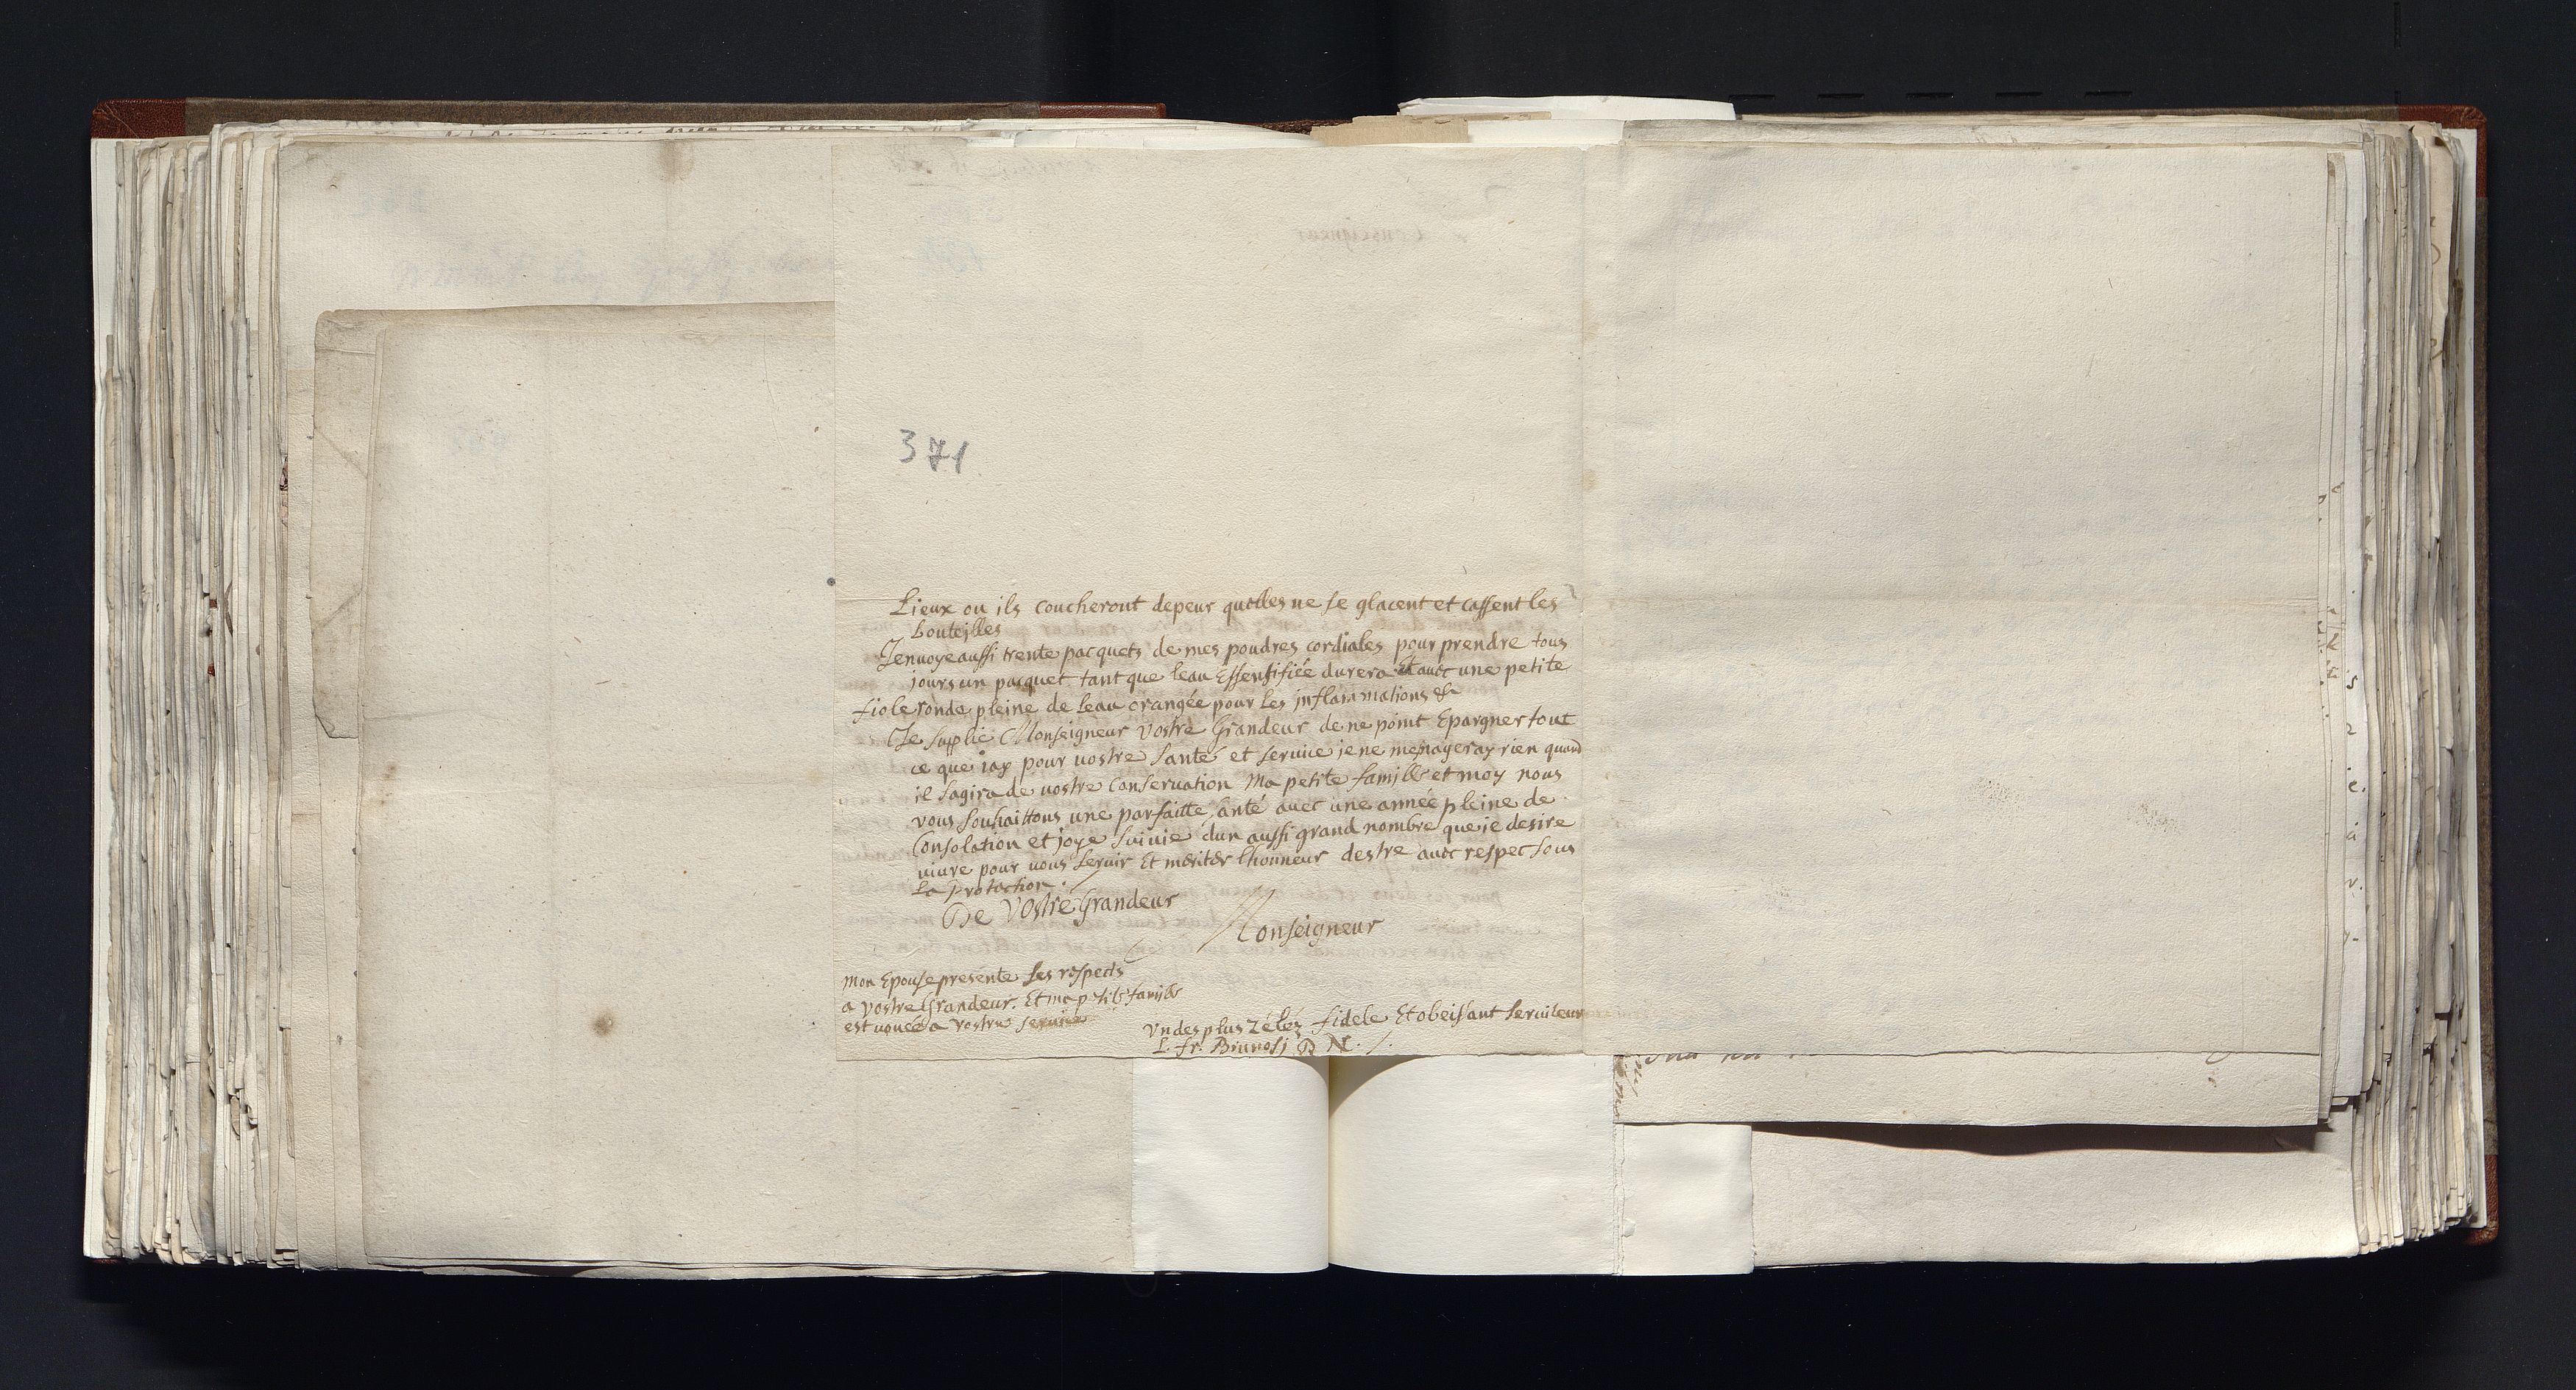 371
Lieux ou ils coucheront depeur quelles ne se glacent et cassent les
bouteilles
Jenuoye aussi trente pacquets de mes poudres cordiales pour prendre tous
jours un pacquet tant que leau Essensifiée durera Et auec une petite
fiole ronde pleine de leau orangée pour les inflammations &
Je supplie Monseigneur Vostre Grandeur de ne point Epargner tout
ce que iay pour vostre santé et seruice ie ne menageray rien quand
il sagira de vostre Conseruation Ma petite famille et moy nous
vous souhaittons une parfaitte santé auec une année pleine de
Consolation et joye suiuie dun aussi grand nombre que ie desire
viure pour vous seruir Et meriter lhonneur destre auec respec sous
La protection.
De Vostre Grandeur
Monseigneur
Mon Epouse presente ses respects
a Vostre Grandeur. Et ma petite famille
est vouée a Vostre seruice
Vn des plus Zéléz fidele Et obeissant seruiteur
L. fr. Brunosj D M. /.